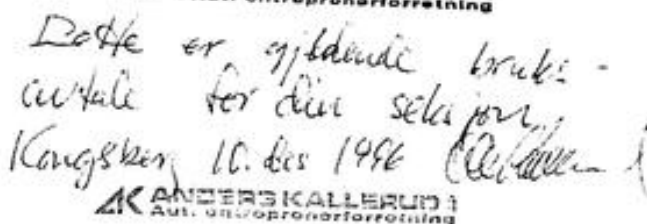 entreprenørforretning
Dette er gjeldende bruks-
avtale for din seksjon,
Kongsberg 10. des 1996
AK ANDERS KALLERUD
Aut. entreprenørforretning